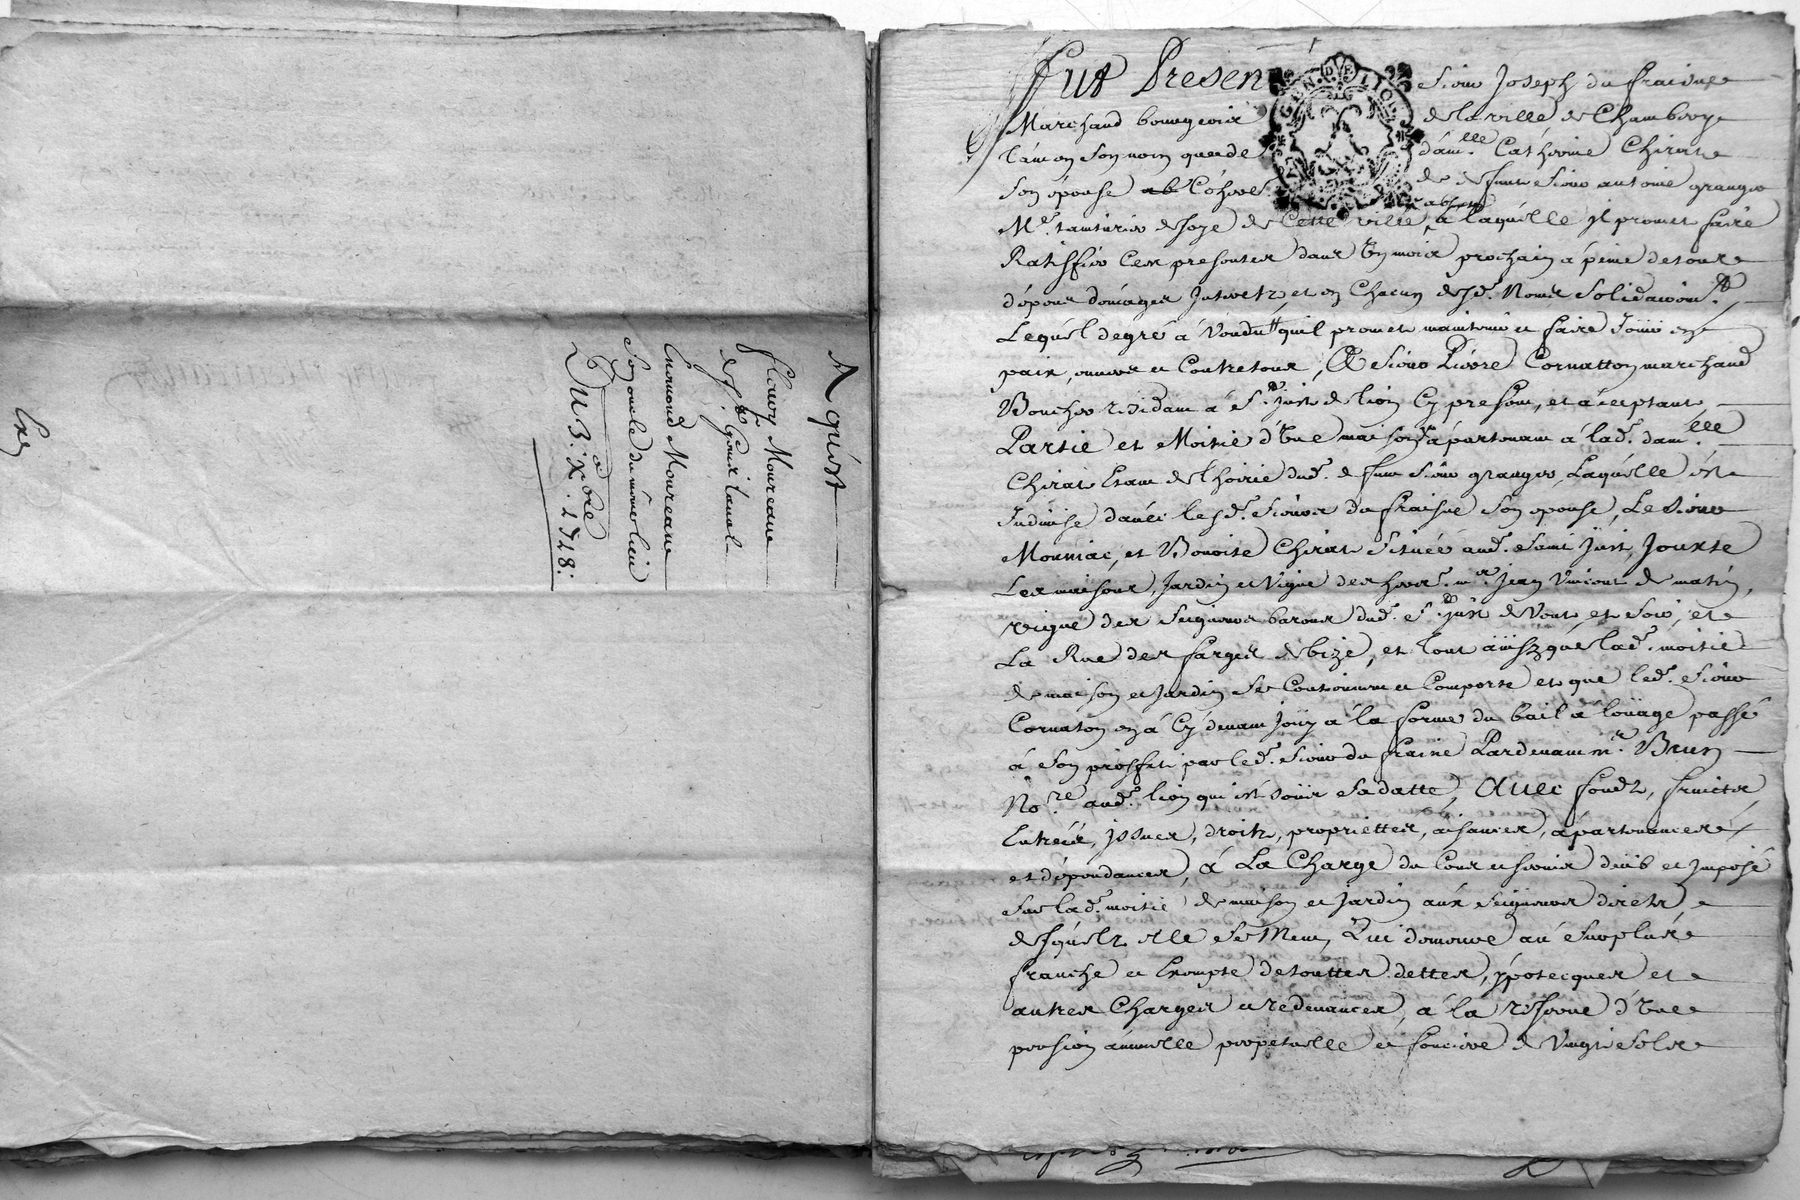 Aquist
Fleury Moureaue
de St. Genis laual
Enemond Moureaue
son oncle du même lieu
Du 3. Xbre 1728:
GEN. DE LION
Fut Present sieur Joseph du fraisne
Marchand bourgeois de la ville de Chambery
tant en son nom que de damlle. Catherine Chirat
son épouse de deffunt sieur antoine granger
Me. tainturier de soye de Cette ville, absente à laquelle il promet faire
Ratiffier Ces presentes dans un moix prochain à peine de tous
dépens domages Interetz, et en Chacun desd. Noms solidairemt.
Lequel de gré à Vendu qu'il promet maintenir et faire Joüir en
paix, envers et Contre tous, A sieur Pierre Cornatton marchand
Boucher residant à St. Just de lion Cy present, et acceptant
Partie et Moitié d'Une maison apartenant à lad. damlle.
Chirat Estant de l'hoirie dud. deffunt sieur granger, Laquelle est
Indivise avec lesd. sieurs du fraisne son épouse, Le sieur
Mouniac, et Benoite Chirat située aud. saint Just, Jouxte
Les maisons, Jardin et Vigne des hoirs mr. Jean Vincent de matin,
vigne des seigneurs barons dud. St. Just de Vent, et soir, et
La Rue des farges de bize, et Tout ainsy que lad. moitié
de maison et Jardin se Contiennent et Comporte et que led. sieur
Cornaton en à Cy devant Joüy à la forme du bail à loüage passé
à son proffit par led. sieur du fraine Pardevant me. Brun
Nore. aud. lion qui est sous sa datte, Avec fondz, fruicts,
Entrées, Issues, droits, propriettes, aisances, apartenances
et dépendances, à La Charge du Cens et servis deub et Imposé
sur lad. moitié de maison et Jardin aux seigneurs directs,
desquelz elle se Meut, Qui demeure au surplus
franche et Exempte de touttes dettes, ypotecques et
autres Charges et redevances, à la reserve d'Une
pension annuelle perpetuelle et fonciere de Vingt sols